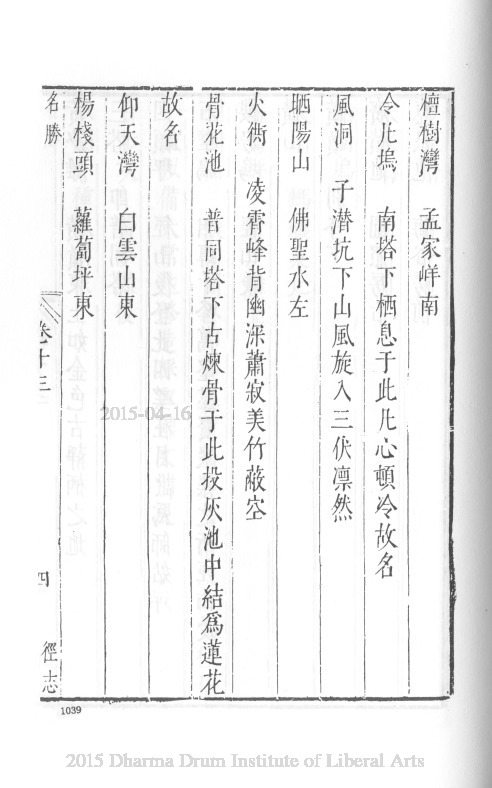 檀樹灣　孟家峰南
令凡塢　南塔下栖息于此凡心頓冷故名
風洞　子潜坑下山風旋入三伏凛然
晒陽山　佛聖水左
火衖　凌霄峰背幽深蕭寂美竹蔽空
骨花池　普同塔下古煉骨于此投灰池中結爲蓮花
故名
仰天灣　白雲山東
楊棧頭　蘿蔔坪東
名勝　卷十三　四　徑志
1039
2015-04-16
2015 Dharma Drum Institute of Liberal Arts